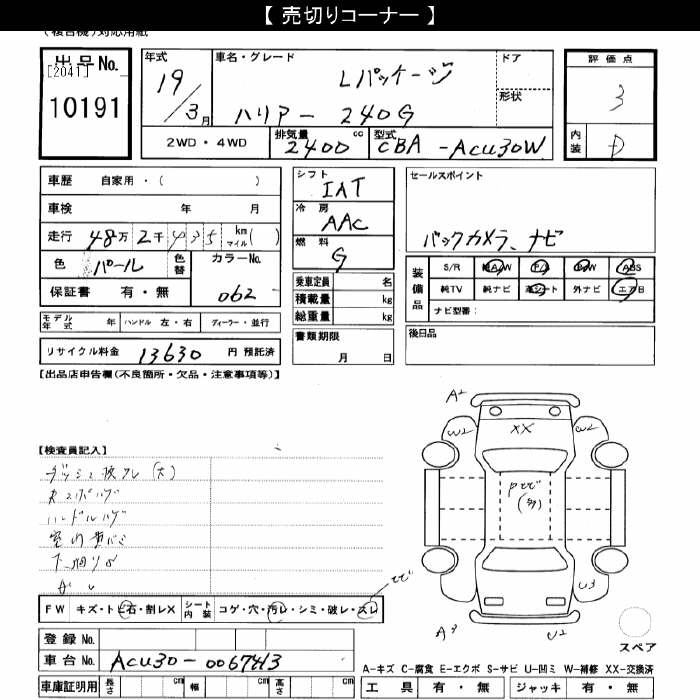 【 売切りコーナー 】
(複合機)対応用紙
出品No.
[2041]
10191
年式
19/3月
車名・グレード
Lパッケージ
ハリアー 240G
ドア
形状
評価点
3
内装
D
2WD・4WD
排気量 2400 cc
型式 CBA -ACU30W
車歴 自家用・( )
車検 年 月
走行 48万 2千 435 km マイル( )
色 パール 色替 カラーNo. 062
保証書 有・無
シフト
IAT
冷房
AAC
燃料
G
乗車定員 名
積載量 kg
総重量 kg
セールスポイント
バックカメラ、ナビ
装備品
S/R 純A/W P/S P/W ABS
純TV 純ナビ 革シート 外ナビ エアB
ナビ型番:
モデル年式 年 ハンドル 左・右 ディーラー・並行
書類期限
月 日
後日品
リサイクル料金 13630 円 預託済
【出品店申告欄(不良箇所・欠品・注意事項等)】
A2
W2
XX
U2
【検査員記入】
ダッシュ
(大)
ハンドル
(多)
U3
FW キズ・トビ石・割レX シート内装 コゲ・穴・汚レ・シミ・破レ・スレ
登録 No.
A3
U2
スペア
車台 No. ACU30-0067413
A-キズ C-腐食 E-エクボ S-サビ U-凹ミ W-補修 XX-交換済
車庫証明用 長さ cm 幅 cm 高さ cm
工具 有・無 ジャッキ 有・無